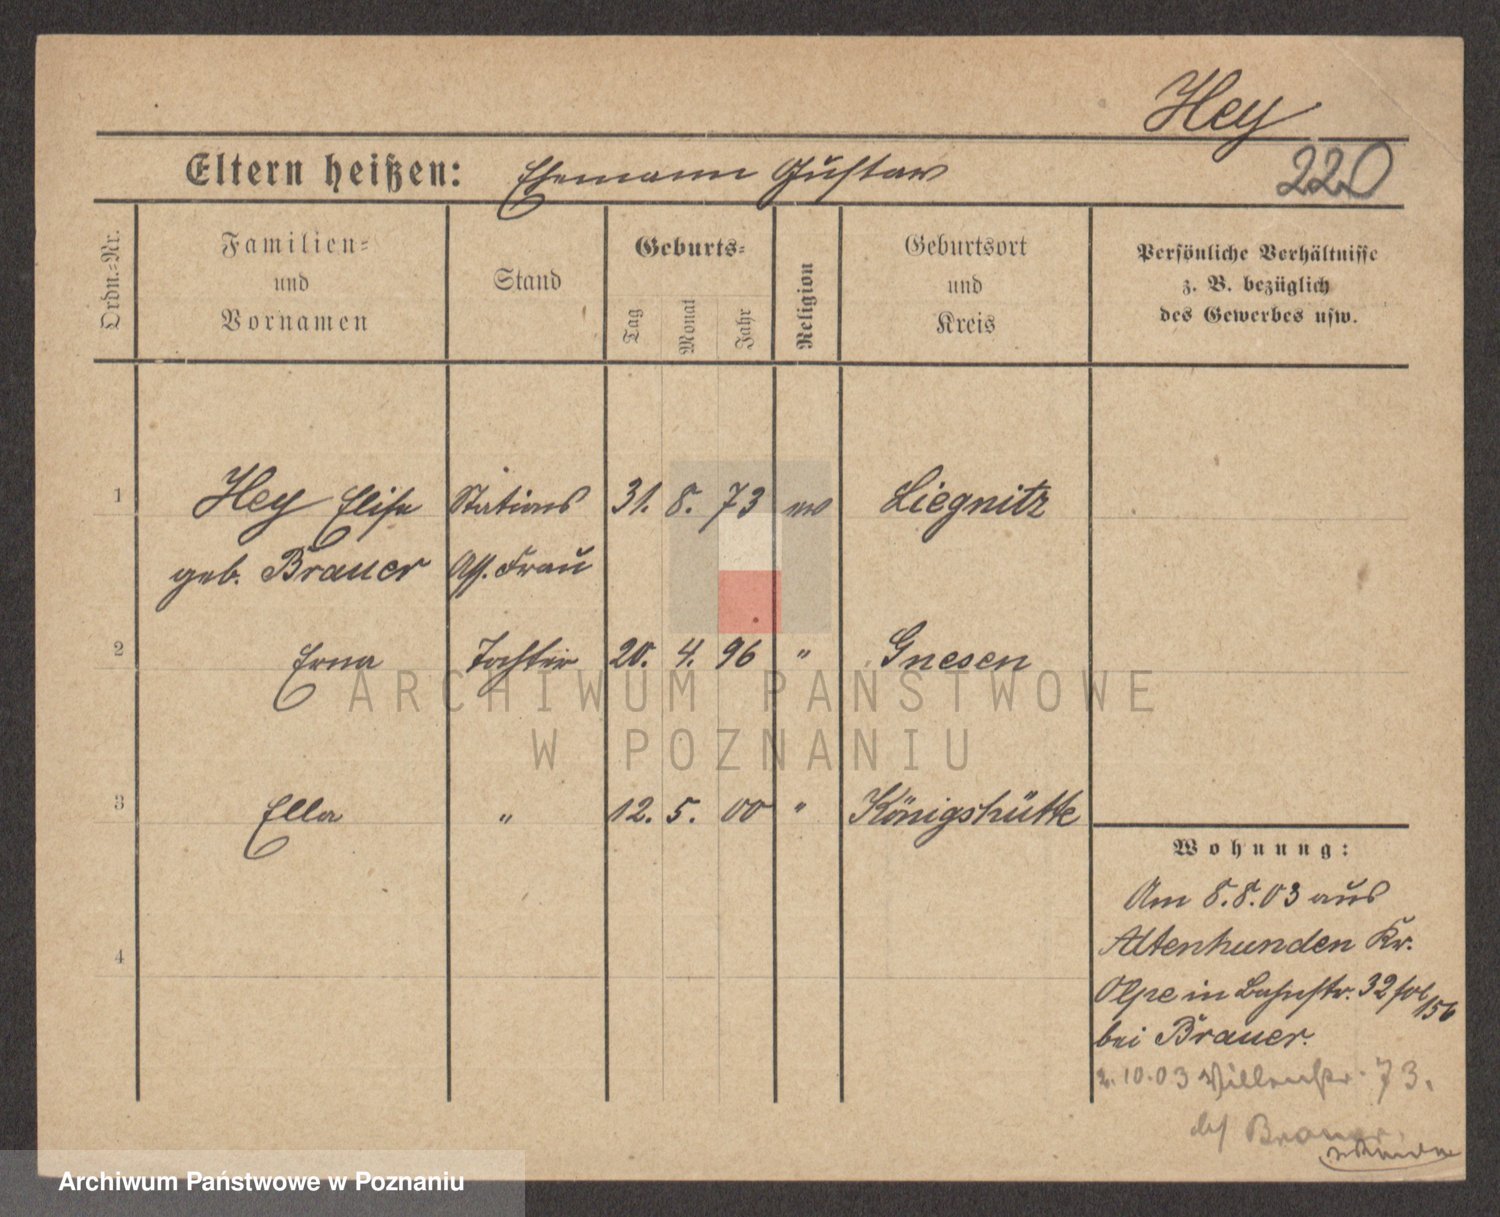 Hey
220
Eltern heißen: Ehemann Gustav
Ordn.=Nr.
Familien=
und
Vornamen
Stand
Geburts=
Tag
Monat
Jahr
Religion
Geburtsort
und
Kreis
Persönliche Verhältnisse
z. B. bezüglich
des Gewerbes usw.
1 Hey Elise Stations 31. 8. 73 ev Liegnitz
geb. Brauer Ass. Frau
2 Erna Tochter 20. 4. 96 " Gnesen
3 Ella " 12. 5. 00 " Königshütte
4
Wohnung:
Am 8.8.03 aus
Altenhunden Kr.
Olpe in Bahnstr. 32 fol 156
bei Brauer.
2.10.03 Villenstr. 73.
bei Brauer.
ARCHIWUM PAŃSTWOWE
W POZNANIU
Archiwum Państwowe w Poznaniu